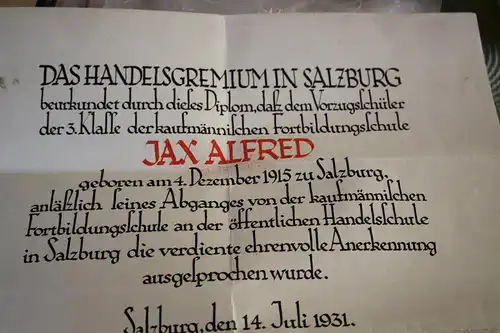 DAS HANDELSGREMIUM IN SALZBURG
beurkundet durch dieſes Diplom, daſz dem Vorzugſchüler
der 3. Klaſſe der kaufmänniſchen Fortbildungsſchule
JAX ALFRED
geboren am 4. Dezember 1915 zu Salzburg,
anläſzlich ſeines Abganges von der kaufmänniſchen
Fortbildungsſchule an der öffentlichen Handelſchule
in Salzburg die verdiente ehrenvolle Anerkennung
ausgeſprochen wurde.
Salzburg, den 14. Juli 1931.